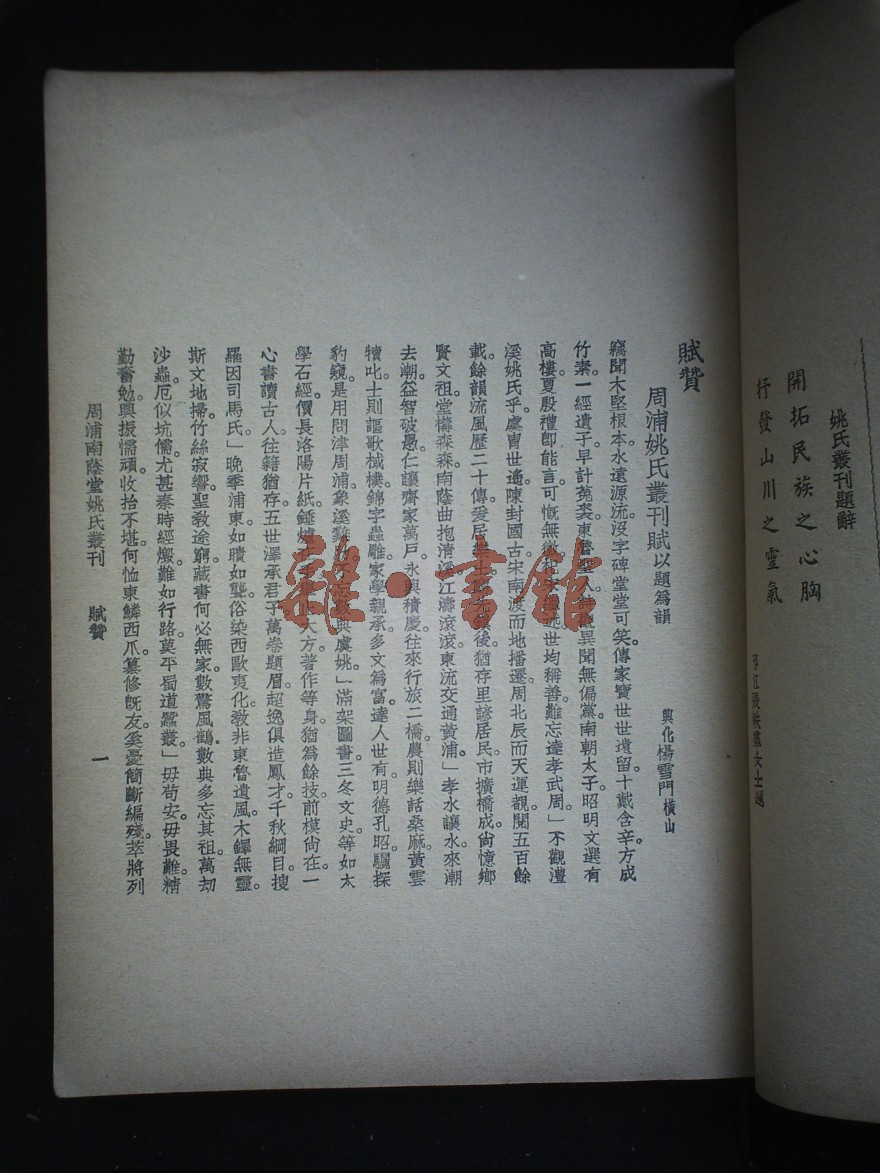 姚氏叢刊題辭
開拓民族之心胸
抒發山川之靈氣
女士題
賦贊
周浦姚氏叢刊賦以題爲韻
興化楊雪門橫山
竊聞木堅根本水遠源流沒字碑堂堂可笑傳家寶世世遺留十載含辛方成
竹素。一經遺子早計菟裘東魯聖人異聞無偏黨南朝太子昭明文選有
高樓夏殷禮卽能言可慨無徵世均稱善難忘達孝武周」不觀澧
溪姚氏乎虞胄世遙陳封國古宋南渡而地播遷周北辰而天運覩閱五百餘
載。餘韻流風歷二十傳爰居後猶存里諺居民市擴橋成尙憶鄉
賢文祖堂檮森森南蔭曲抱清溪江濤滾滾東流交通黃浦」孝水讓水來潮
去潮。益智破愚仁讓齊家萬戶永興積慶往來行旅二橋農則樂話桑麻黃雲
犢叱士則謳歌棫樸錦字蟲雕家學親承多文爲富達人世有明德孔昭驪探
豹窺。是用問津周浦象溪不忘數典虞姚」滿架圖書三冬文史等如太
學石經。價長洛陽片紙錘爐大方著作等身猶爲餘技前模尙在一
心書讀古人往籍猶存五世澤承君子萬卷題眉超逸俱造鳳才千秋綱目搜
羅因司馬氏」晚季浦東如聵如聾俗染西歐夷化敎非東魯遺風木鐸無靈。
斯文地掃竹絲寂響聖敎途窮藏書何必無家數驚風鶴數典多忘其祖萬刼
沙蟲。厄似坑儒尤甚秦時經燬難如行路莫平蜀道蠶叢」毋苟安毋畏難精
勤奮勉。興振懦頑收拾不堪何恤東鱗西爪纂修旣友奚憂簡斷編殘萃將列
周浦南蔭堂姚氏叢刊 賦贊 一
雜·書館